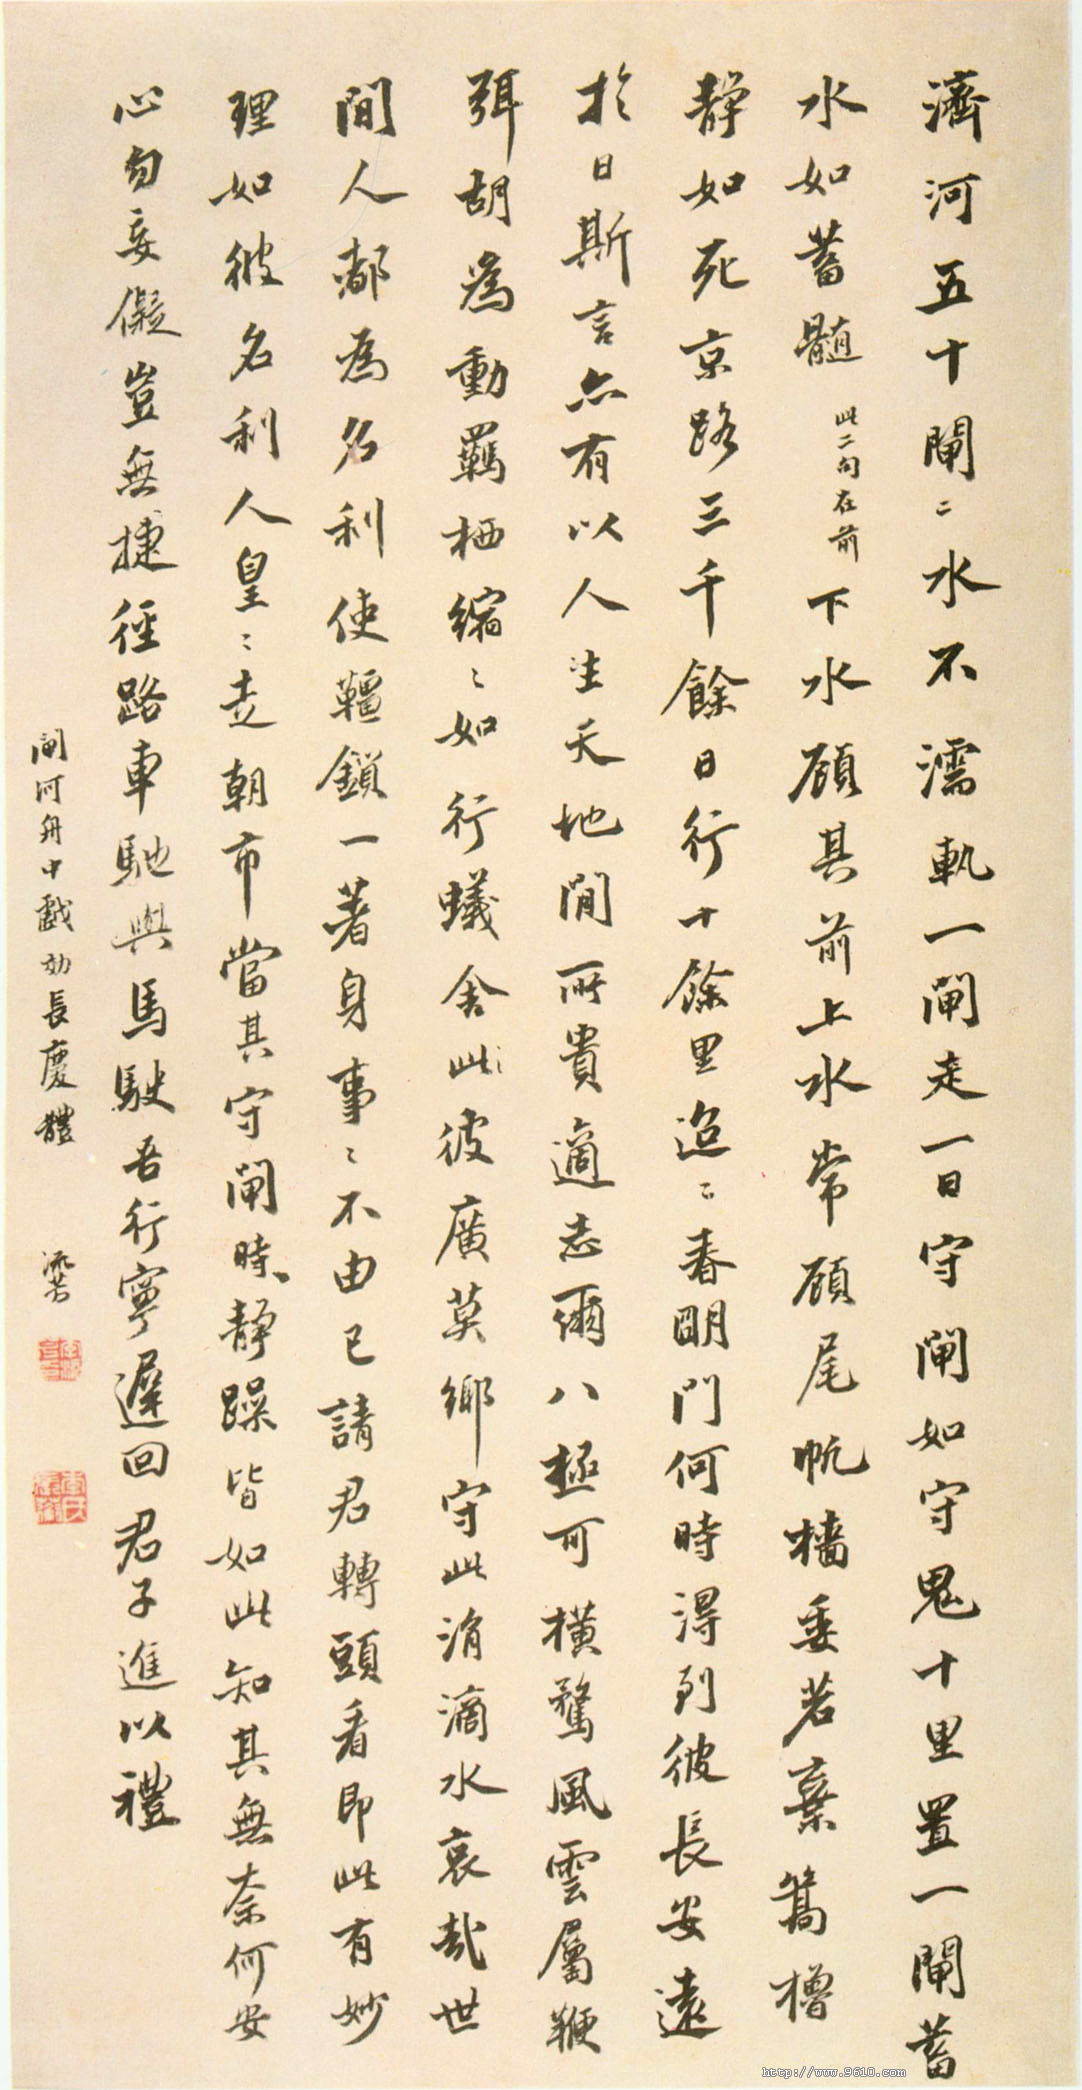 濟河五十閘〻水不濡軌一閘走一日守閘如守鬼十里置一閘蓄
水如蓄髓此二句在前下水顧其前上水常顧尾帆檣委若棄篙櫓
靜如死京路三千餘日行十餘里迢〻春明門何時得到彼長安遠
於日斯言亦有以人生天地間所貴適志爾八極可橫騖風雲屬鞭
弭胡為動羈栖縮〻如行蟻舍此彼廣莫鄉守此涓滴水哀哉世
間人都為名利使韁鎖一著身事〻不由己請君轉頭看即此有妙
理如彼名利人皇〻走朝市當其守閘時靜躁皆如此知其無奈何安
心勿妄儗豈無捷徑路車馳與馬駛吾行寧遲回君子進以禮
閘河舟中戲効長慶體
http://www.9610.com